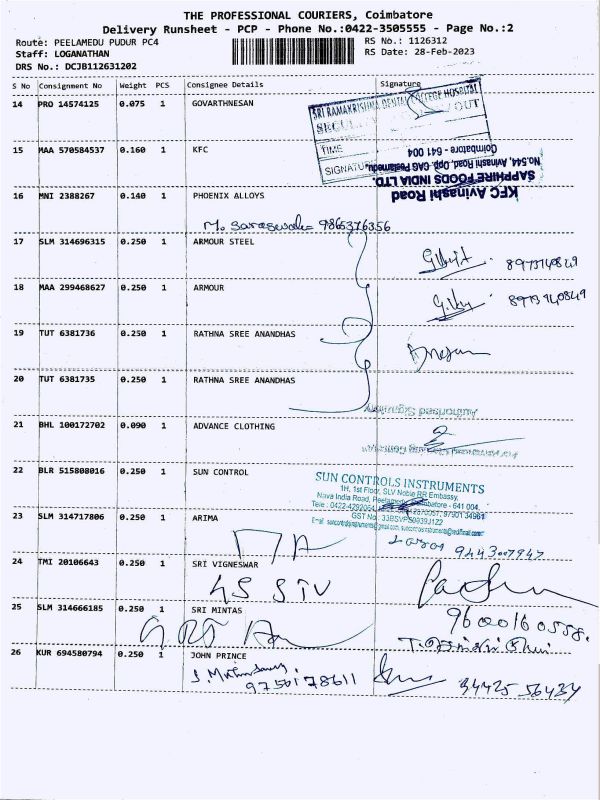 THE PROFESSIONAL COURIERS, Coimbatore
Delivery Runsheet - PCP - Phone No.:0422-3505555 - Page No.:2
Route: PEELAMEDU PUDUR PC4 RS No.: 1126312
Staff: LOGANATHAN RS Date: 28-Feb-2023
DRS No.: DCJB112631202
S No Consignment No Weight PCS Consignee Details Signature
14 PRO 14574125 0.075 1 GOVARTHNESAN
SRI RAMAKRISHNA DENTAL COLLEGE HOSPITAL
OUT
TIME
SIGNATURE
15 MAA 570584537 0.160 1 KFC
KFC Avinashi Road
SAPPHIRE FOODS INDIA LTD.
No.544, Avinashi Road, Opp. CAG Peelamedu,
Coimbatore - 641 004
16 MNI 2388267 0.140 1 PHOENIX ALLOYS
9865376356
17 SLM 314696315 0.250 1 ARMOUR STEEL
18 MAA 299468627 0.250 1 ARMOUR
19 TUT 6381736 0.250 1 RATHNA SREE ANANDHAS
20 TUT 6381735 0.250 1 RATHNA SREE ANANDHAS
Authorised Signatory
21 BHL 100172702 0.090 1 ADVANCE CLOTHING
22 BLR 515808016 0.250 1 SUN CONTROL
SUN CONTROLS INSTRUMENTS
1H, 1st Floor, SLV Noble RR Embassy,
Nava India Road, Peelamedu, Coimbatore - 641 004.
23 SLM 314717806 0.250 1 ARIMA
9443007947
24 TMI 20106643 0.250 1 SRI VIGNESWAR
25 SLM 314666185 0.250 1 SRI MINTAS
9600160558.
26 KUR 694580794 0.250 1 JOHN PRINCE
9750178611 34425 56434